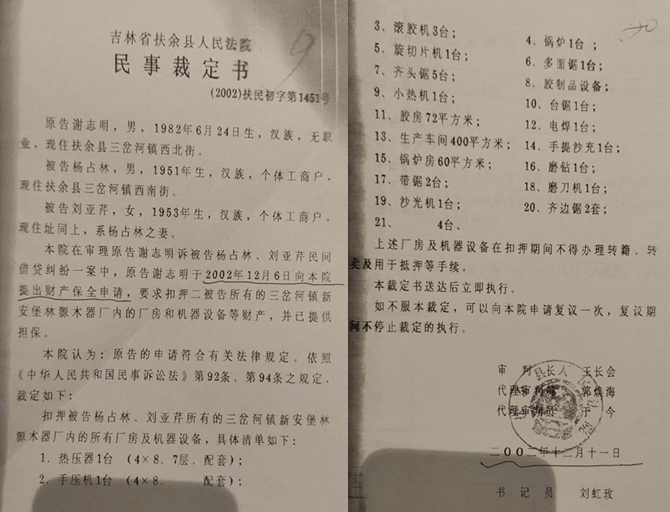 吉林省扶余县人民法院
民事裁定书
(2002)扶民初字第1451号
原告谢志明，男，1982年6月24日生，汉族，无职
业，现住扶余县三岔河镇西北街。
被告杨占林，男，1951年生，汉族，个体工商户，
现住扶余县三岔河镇西南街。
被告刘亚芹，女，1953年生，汉族，个体工商户，
现住址同上，系杨占林之妻。
本院在审理原告谢志明诉被告杨占林、刘亚芹民间
借贷纠纷一案中，原告谢志明于2002年12月6日向本院
提出财产保全申请，要求扣押二被告所有的三岔河镇新
安堡林源木器厂内的厂房和机器设备等财产，并已提供
担保。
本院认为：原告的申请符合有关法律规定。依照
《中华人民共和国民事诉讼法》第92条、第94条之规定，
裁定如下：
扣押被告杨占林、刘亚芹所有的三岔河镇新安堡林
源木器厂内的所有厂房及机器设备，具体清单如下：
1、热压器1台（4×8、7层、配套）；
2、手压机1台（4×8、 配套）；
3、滚胶机3台；
4、锅炉1台；
5、旋切片机1台；
6、多面锯1台；
7、齐头锯5台；
8、胶制品设备；
9、小热机1台；
10、台锯1台；
11、胶房72平方米；
12、电焊1台；
13、生产车间400平方米；
14、手提沙充1台；
15、锅炉房60平方米；
16、磨钻1台；
17、带锯2台；
18、磨刀机1台；
19、沙光机1台；
20、齐边锯2套；
21、 4台。
上述厂房及机器设备在扣押期间不得办理转籍、转
卖及用于抵押等手续。
本裁定书送达后立即执行。
如不服本裁定，可以向本院申请复议一次，复议期
间不停止裁定的执行。
审判长 王长会
代理审判员 郭焕海
代理审判员 于今
二00二年十二月十一日
书记员 刘虹玫